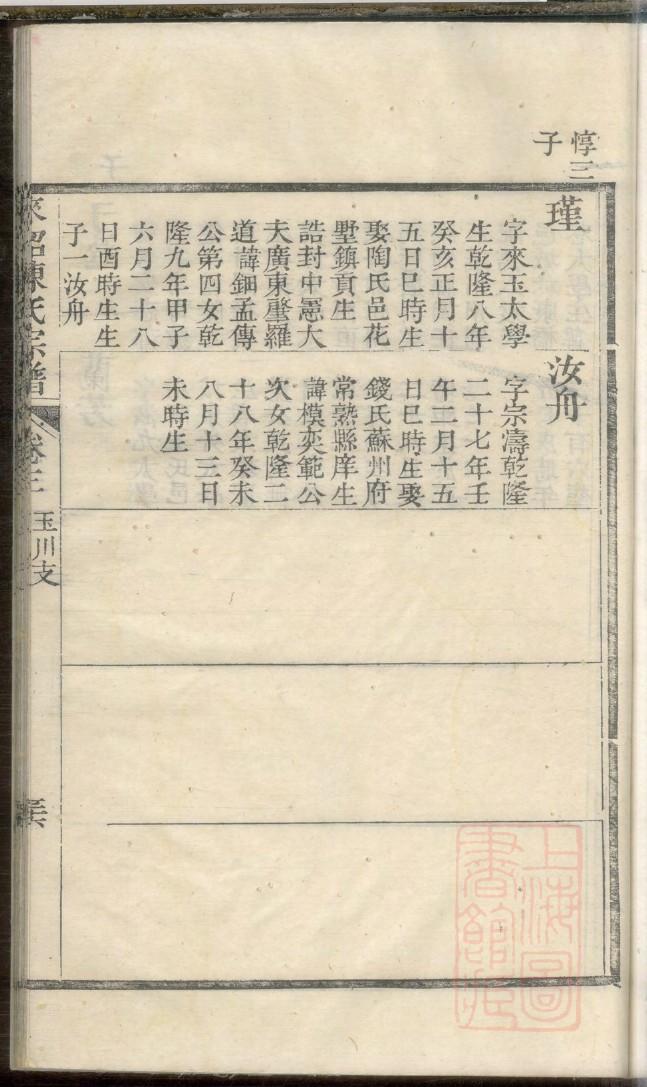 惇三
子
瑾
字來玉太學
生乾隆八年
癸亥正月十
五日巳時生
娶陶氏邑花
墅鎮貢生
誥封中憲大
夫廣東壓羅
道諱鈿孟傳
公第四女乾
隆九年甲子
六月二十八
日酉時生生
子一汝舟
汝舟
字宗濤乾隆
二十七年壬
午二月十五
日巳時生娶
錢氏蘇州府
常熟縣庠生
諱模奕範公
次女乾隆二
十八年癸未
八月十三日
未時生
陳氏宗譜
卷三
玉川支
上海圖書館藏